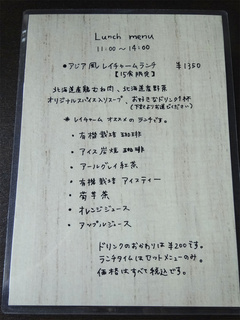 Lunch menu
11:00 〜 14:00
● アジア風 レイチャームランチ ¥1350
【15食限定】
北海道産鶏むね肉、北海道産野菜
オリジナルスパイス入りスープ、お好きなドリンク1杯
(下記よりお選びください)
* レイチャーム オススメの ランチです。
・ 有機栽培 珈琲
・ アイス 炭焼 珈琲
・ アールグレイ 紅茶
・ 有機栽培 アイスティー
・ 菊芋茶
・ オレンジジュース
・ アップルジュース
ドリンクのおかわりは ¥200です。
ランチタイムはセットメニューのみ。
価格はすべて税込です。